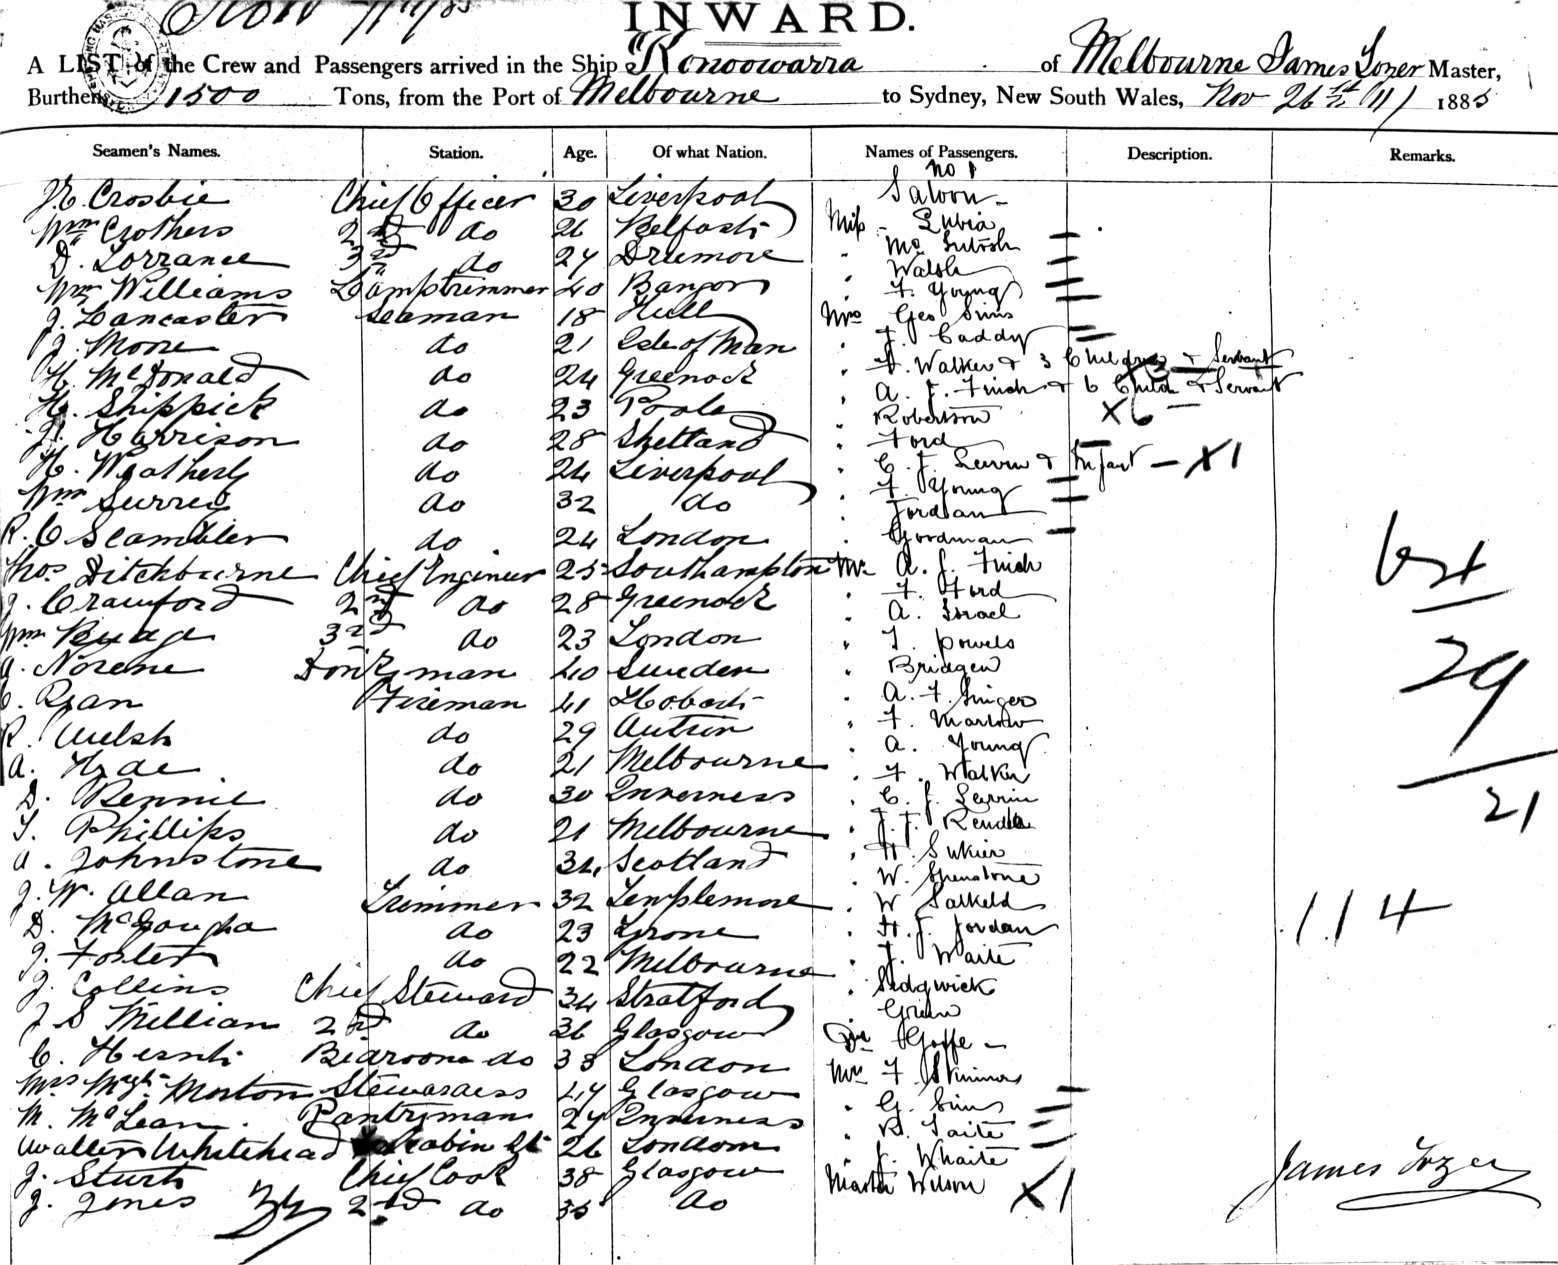 INWARD.
A LIST of the Crew and Passengers arrived in the Ship "Konoowarra of Melbourne James Tozer Master,
Burthen 1500 Tons, from the Port of Melbourne to Sydney, New South Wales, Nov 26 1885
Seamen's Names. Station. Age. Of what Nation. Names of Passengers. Description. Remarks.
No 1
Saloon
Crosbie Chief Officer 30 Liverpool
Wm Crothers 2nd do 26 Belfast Miss
D. Lorrance 3rd do 27 Dromore McIntosh
Wm Williams Lamptrimmer 40 Bangor Walsh
F. Young
J. Lancaster Seaman 18 Hull Mrs Geo Sims
J. Moore do 21 Isle of Man Caddy
H. McDonald do 24 Greenock Walker & 3 Children & Servant
H. Shippick do 23 Poole A. J. Finch & 6 Child & Servant
Robertson X6
Harrison do 28 Shetland Ford
H. Weatherly do 24 Liverpool C. J. & Infant X1
Wm do 32 do F. Young
Jordan
R. C Scambler do 24 London Goodman
Thos Ditchburne Chief Engineer 25 Southampton Mr A. J. Finch
J. Crawford 2nd do 28 Greenock F. Ford
A. Israel
Wm Budge 3rd do 23 London T. Powels
Norene Donkyman 40 Sweden Bridgen
C. Ryan Fireman 41 Hobart A. F. Singer
R. Welsh do 29 F. Marlow
A. Young
A. Hyde do 21 Melbourne F. Walker
D. Rennie do 30 Inverness C. J.
T. Phillips do 21 Melbourne
A. Johnstone do 34 Scotland H.
W. Shenstone
J. W. Allan Trimmer 32 Templemore W Salkeld
D. do 23 Tyrone H. J. Jordan
J. Foster do 22 Melbourne J. Waite
J. Collins Chief Steward 34 Stratford Sedgwick
J S Millian 2nd do 36 Glasgow Green
C. Bedroom do 38 London Goffe
Mrs Mgt Morton Stewardess 47 Glasgow F. Skinner
M. McLean Pantryman 27 Inverness G. Sims
Walter Whitehead Cabin 26 London Taite
J. Sturt Chief Cook 38 Glasgow J. Whaite
J. Jones 2nd do 35 do Master Wilson X1
29
21
114
James Tozer